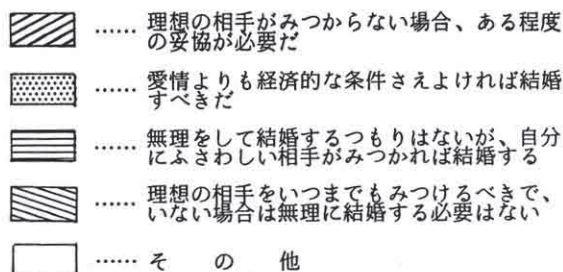 …… 理想の相手がみつからない場合、ある程度
の妥協が必要だ
…… 愛情よりも経済的な条件さえよければ結婚
すべきだ
…… 無理をして結婚するつもりはないが、自分
にふさわしい相手がみつかれば結婚する
…… 理想の相手をいつまでもみつけるべきで、
いない場合は無理に結婚する必要はない
…… そ の 他